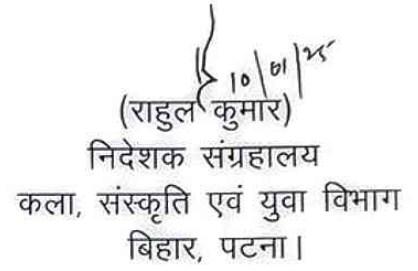 10/01/25
(राहुल कुमार)
निदेशक संग्रहालय
कला, संस्कृति एवं युवा विभाग
बिहार, पटना।